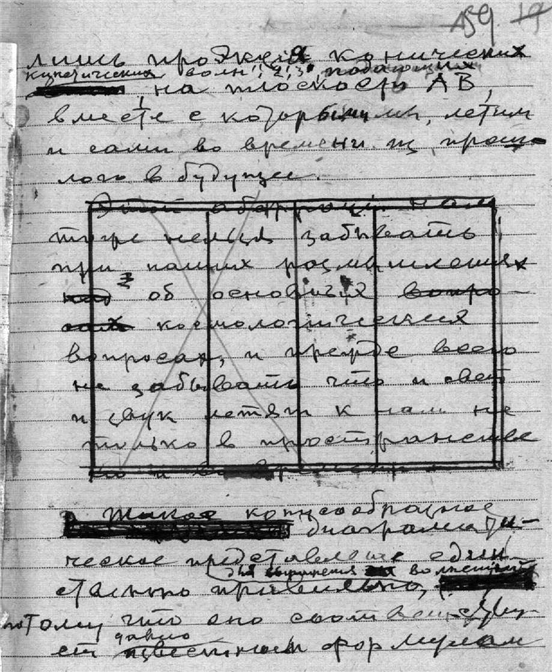 159
лишь проэкция конических
кинетических волн 1, 2, 3, падающих
на плоскость АВ,
вместе с которыми летим
и сами во времени из прош-
лого в будущее.
Этой аберрации нам
тоже нельзя забывать
при наших размышлениях
об основных
космологических
вопросах, и прежде всего
не забывать что и свет
и звук летят к нам не
только в пространстве
но и во времени
Такое конусообразное
диаграммати-
ческое представление един-
для выражения волнений
ственно правильно,
потому что оно соответству-
давно
ет известным формулам